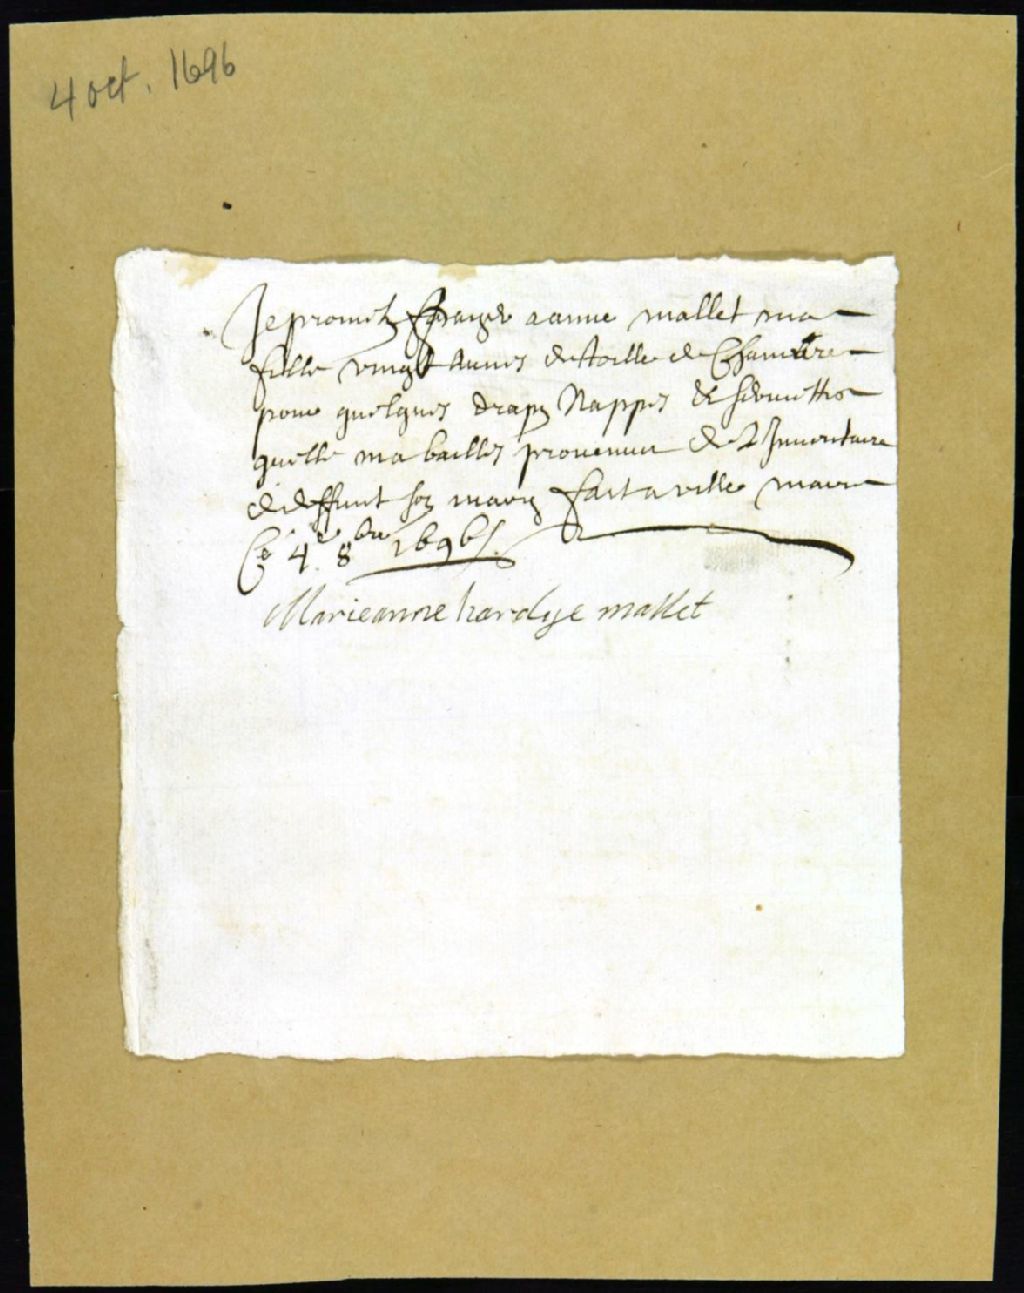 4 oct. 1696
Je prometz payer a anne mallet ma
fille vingt aunes de toille de Chanvre
pour quelques drapz Nappes & serviettes
quelle ma baillez provenUe de L Inventaire
de deffunt son mary fait a ville marie
Ce 4e 8bre 1696
Marieanne hardye mallet